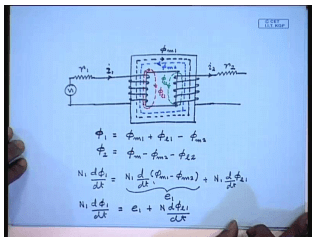 © CET
I.I.T. KGP
φm1
r1 i1 φm2 i2 r2
φl1 φl2
V1
φ1 = φm1 + φl1 - φm2
φ2 = φm - φm2 - φl2
N1 dφ1/dt = N1 d/dt (φm1 - φm2) + N1 dφl1/dt
e1
N1 dφ1/dt = e1 + N dφl1/dt